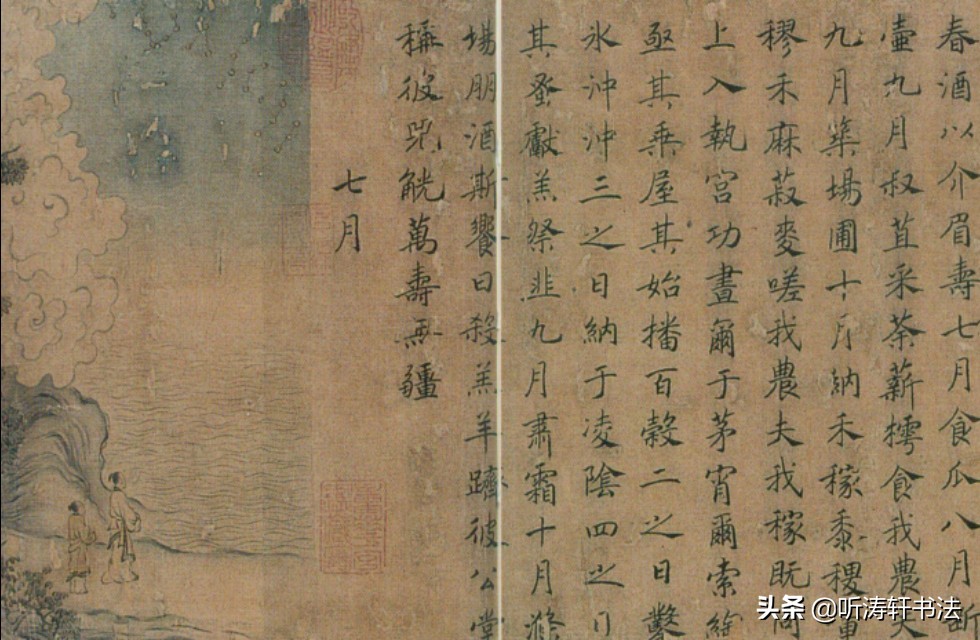 春酒以介眉壽七月食瓜八月斷
壷九月叔苴采荼薪樗食我農
九月築場圃十月納禾稼黍稷重
穋禾麻菽麥嗟我農夫我稼既同
上入執宮功晝爾于茅宵爾索綯
亟其乘屋其始播百穀二之日鑿
氷沖沖三之日納于凌陰四之日
其蚤獻羔祭韭九月肅霜十月滌
場朋酒斯饗曰殺羔羊躋彼公堂
稱彼兕觥萬壽無疆
七月
头条 @听涛轩书法